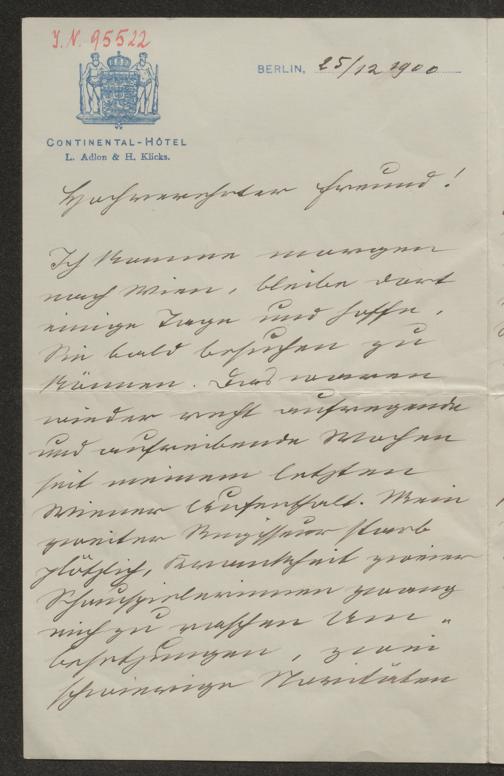 J.N. 95522
CONTINENTAL-HÔTEL
L. Adlon & H. Klicks.
BERLIN, 25/12 1900
Hochverehrter Freund!
Ich komme morgen
nach Wien, bleibe dort
einige Tage und hoffe,
Sie bald besuchen zu
können. Das waren
wieder recht aufregende
und aufreibende Wochen
seit meinem letzten
Wiener Aufenthalt. Mein
zweiter Regisseur starb
plötzlich, Krankheit zweier
Schauspielerinnen zwang
mich zu raschen Um-
besetzungen, zwei
schwierige Novitäten